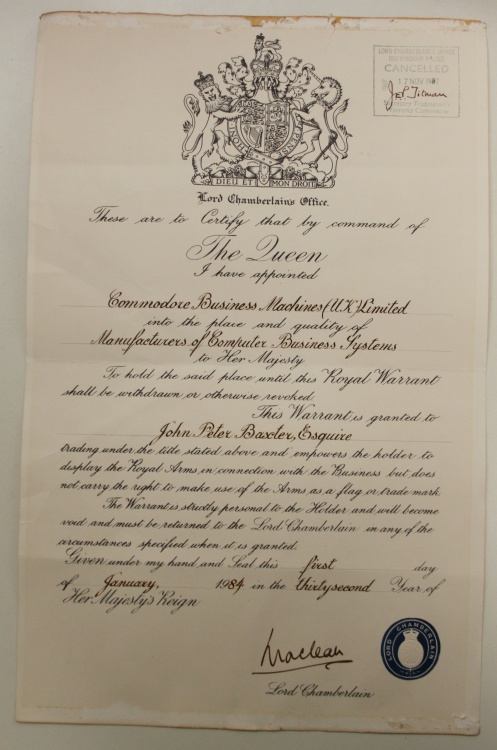 LORD CHAMBERLAIN'S OFFICE
BUCKINGHAM PALACE
CANCELLED
17 NOV 1987
HONI
PENSE
DIEU ET MON DROIT
Lord Chamberlain's Office.
These are to Certify that by command of
The Queen
I have appointed
Commodore Business Machines (UK) Limited
into the place and quality of
Manufacturers of Computer Business Systems
to Her Majesty
To hold the said place until this Royal Warrant
shall be withdrawn or otherwise revoked
This Warrant is granted to
John Peter Baxter, Esquire
trading under the title stated above and empowers the holder to
display the Royal Arms in connection with the Business but does
not carry the right to make use of the Arms as a flag or trade mark
The Warrant is strictly personal to the Holder and will become
void and must be returned to the Lord Chamberlain in any of the
circumstances specified when it is granted.
Given under my hand and Seal this first day
of January, 1984 in the thirtysecond Year of
Her Majesty's Reign
Maclean
LORD CHAMBERLAIN
Lord Chamberlain